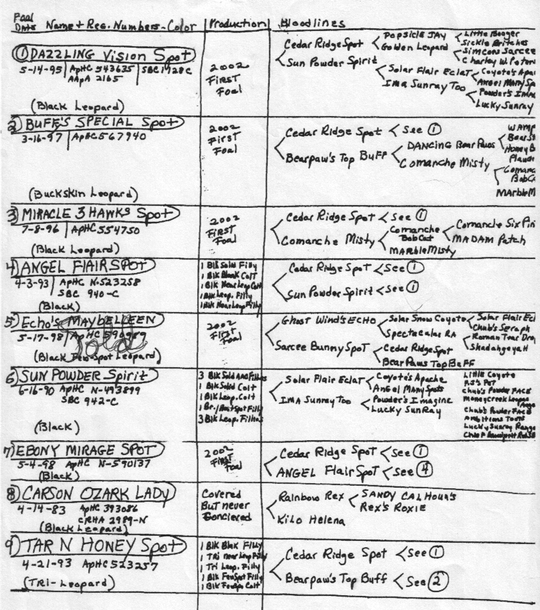 Foal Date Name + Reg. Numbers - Color Production Bloodlines
① DAZZLING Vision Spot
5-14-95 ApHC 543635 SBC 1428C
AApA 2105
(Black Leopard)
2002
First
Foal
Cedar Ridge Spot
Popsicle Jay
Golden Leopard
Little Booger
Sickle Britches
Simcoes Sarcee
Sun Powder Spirit
Solar Flair Eclat
Ima Sunray Too
Coyote's Apa
Angel Many Sp
Powder's Ima
Lucky Sunray
2 BUFF'S SPECIAL Spot
3-16-97 ApHC 567940
(Buckskin Leopard)
2002
First
Foal
Cedar Ridge Spot < See ①
Bearpaw's Top Buff
DANCING Bear Paws
Comanche Misty
3 MIRACLE 3 HAWKS Spot
7-8-96 ApHC 554750
(Black Leopard)
2002
First
Foal
Cedar Ridge Spot < See ①
Comanche Misty
Comanche Bob Cat
Marble Misty
Comanche Six Pin
MADAM Patch
4 ANGEL FLAIR SPOT
4-3-93 ApHC N-523258
SBC 940-C
(Black)
1 Blk Solid Filly
1 Blk Leop. Filly
Cedar Ridge Spot < See ①
Sun Powder Spirit < See ①
5 Echo's MAYBELLEEN
5-17-98 ApHC
(Black Few Spot Leopard)
Sold
2002
First
Foal
Ghost Wind's ECHO
Solar Snow Coyote
Spectacular RA
Solar Flair Ecl
Chub's Seraph
Roman Tear Dro
Shadahgeyah
Sarcee Bunny Spot
Cedar Ridge Spot
Bear Paws Top Buff
6 SUN POWDER Spirit
6-16-90 ApHC N-493899
SBC 942-C
(Black)
1 Blk Solid Colt
1 Blk Leop. Colt
3 Blk Leop. Fillies
Solar Flair Eclat
Coyote's Apache
Angel Many Spots
Ima Sunray Too
Powder's Imagine
Lucky SunRay
Little Coyote
Chub's Powder Face
Chub's Powder Face
Lucky Sunray Range
7 EBONY MIRAGE SPOT
5-4-98 ApHC N-590137
(Black)
2002
First
Foal
Cedar Ridge Spot < See ①
ANGEL Flair Spot < See ④
8 CARSON OZARK LADY
4-14-83 ApHC 393086
CRHA 2989-N
(Black Leopard)
Covered
But never
Rainbow Rex
SANDY CALHOUN'S
REX'S ROXIE
Kilo Helena
9 TAR N HONEY Spot
4-21-93 ApHC 523257
(TRI-Leopard)
1 Blk Blnk Filly
1 Tri near Leop Filly
1 Tri Leop. Filly
1 Blk FewSpot Filly
1 Blk FewSpo Colt
Cedar Ridge Spot < See ①
Bearpaw's Top Buff < See ②